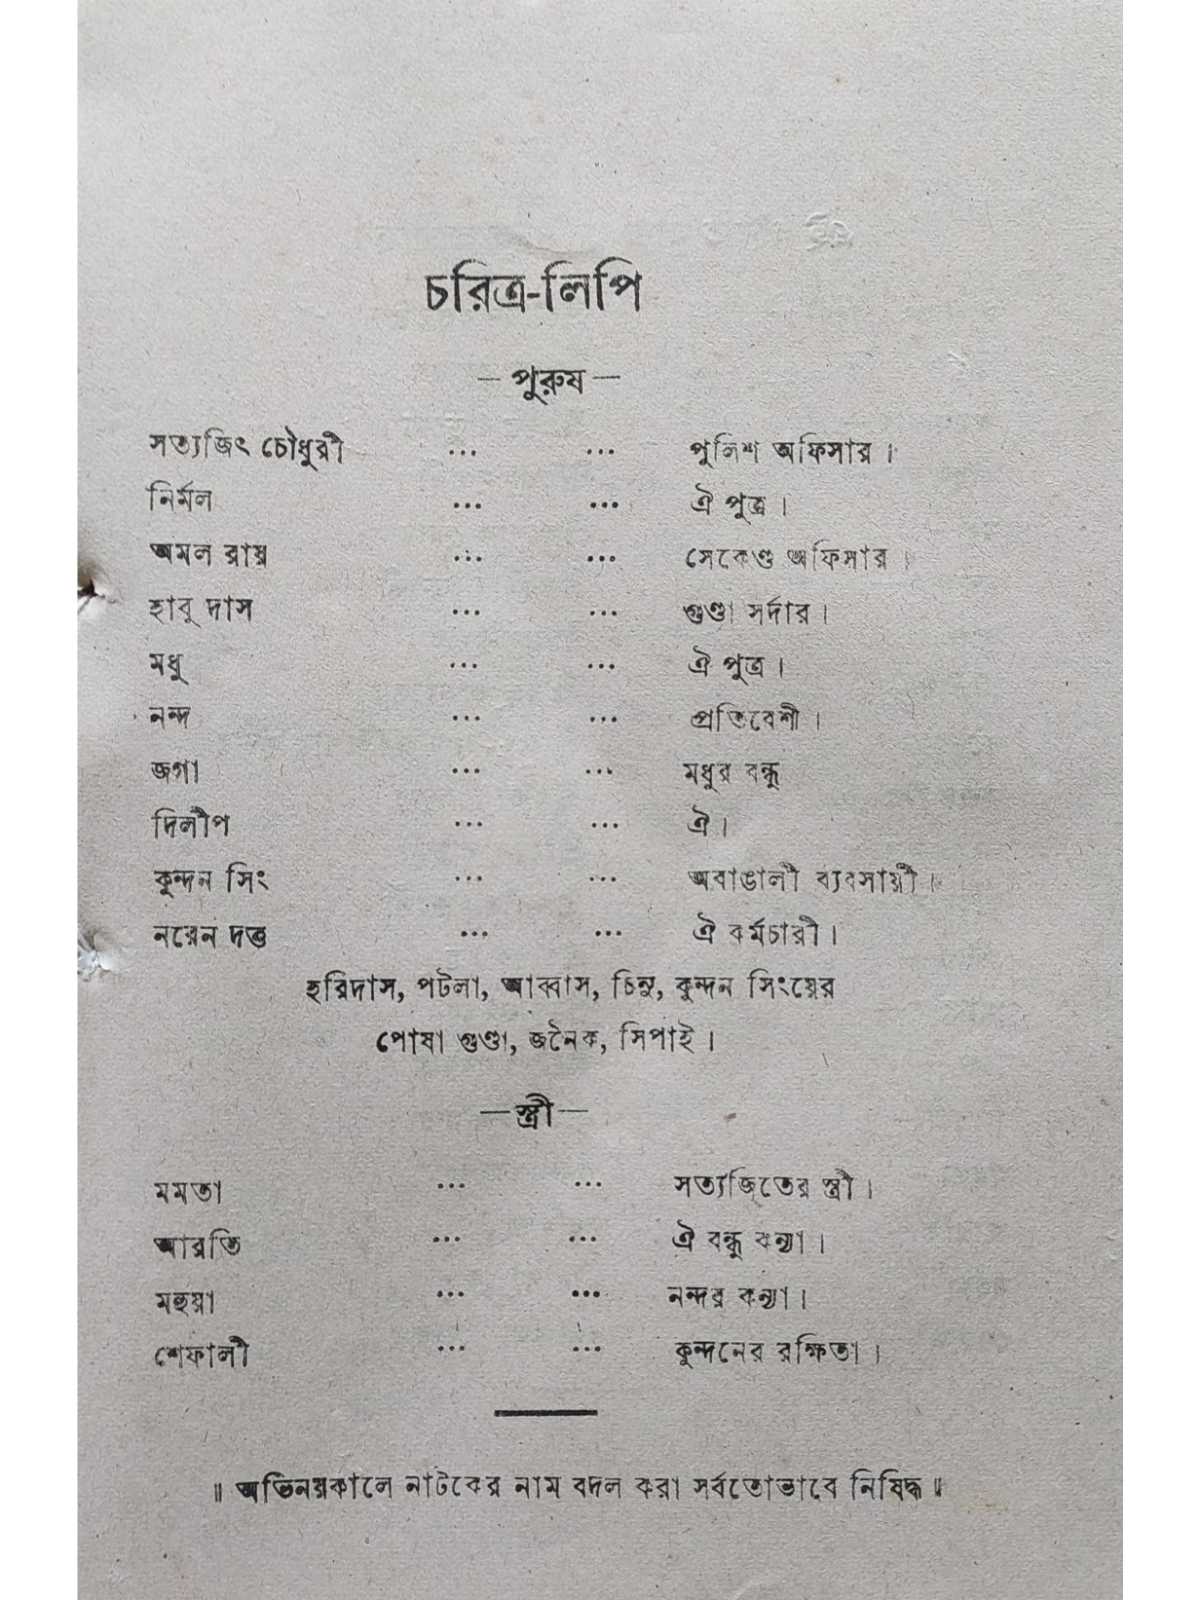 চরিত্র-লিপি
— পুরুষ —
সত্যজিৎ চৌধুরী ... ... পুলিশ অফিসার ।
নির্মল ... ... ঐ পুত্র ।
অমল রায় ... ... সেকেণ্ড অফিসার ।
হাবু দাস ... ... গুণ্ডা সর্দার ।
মধু ... ... ঐ পুত্র ।
নন্দ ... ... প্রতিবেশী ।
জগা ... ... মধুর বন্ধু
দিলীপ ... ... ঐ ।
কুন্দন সিং ... ... অবাঙালী ব্যবসায়ী ।
নরেন দত্ত ... ... ঐ কর্মচারী ।
হরিদাস, পটলা, আব্বাস, চিনু, কুন্দন সিংয়ের
পোষা গুণ্ডা, জনৈক, সিপাই ।
— স্ত্রী —
মমতা ... ... সত্যজিতের স্ত্রী ।
আরতি ... ... ঐ বন্ধু কন্যা ।
মহুয়া ... ... নন্দর কন্যা ।
শেফালী ... ... কুন্দনের রক্ষিতা ।
॥ অভিনয়কালে নাটকের নাম বদল করা সর্বতোভাবে নিষিদ্ধ ॥